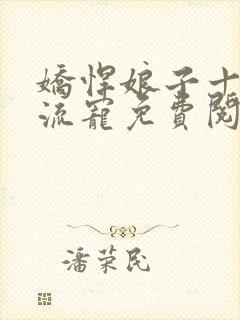 嬌悍娘子十
流寵免費閱
潘荣民